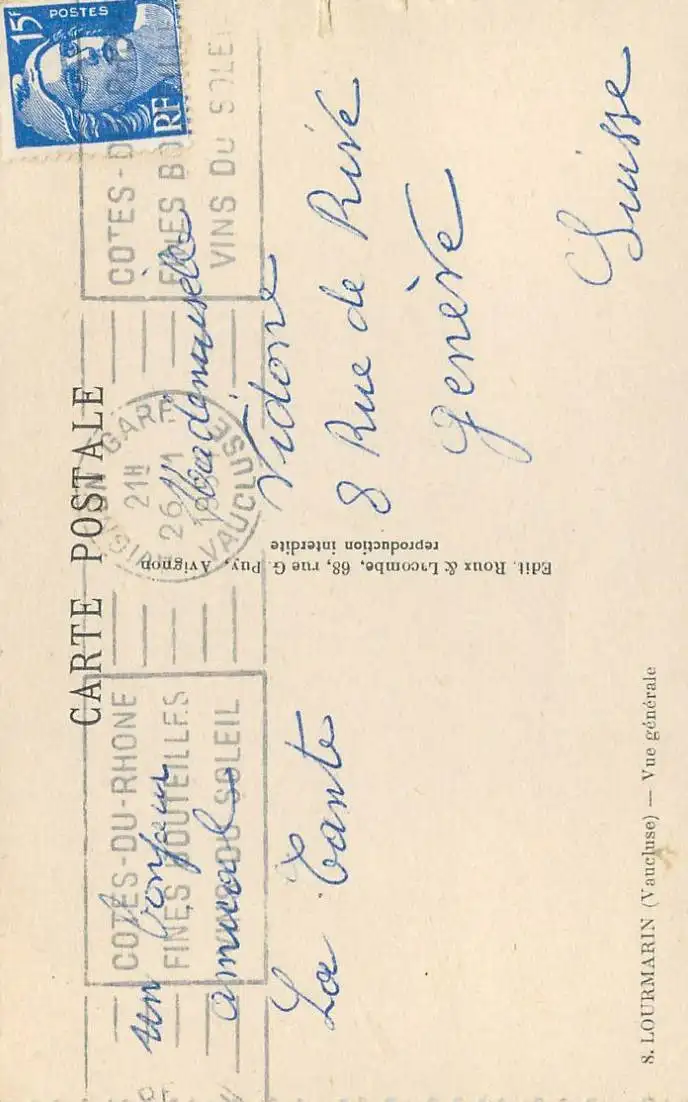 CARTE POSTALE
POSTES
15F
RF
COTES-DU-RHONE
FINES BOUTEILLES
VINS DU SOLEIL
AVIGNON GARE
21H
26
VAUCLUSE
COTES-D
FINES BO
VINS DU SOLEI
un bonjour
amical
La Tante
Mademoiselle
Vidone
8 Rue de Rive
Genève
Suisse
Edit. Roux & Lacombe, 68, rue G. Puy, Avignon
reproduction interdite
8. LOURMARIN (Vaucluse) — Vue générale